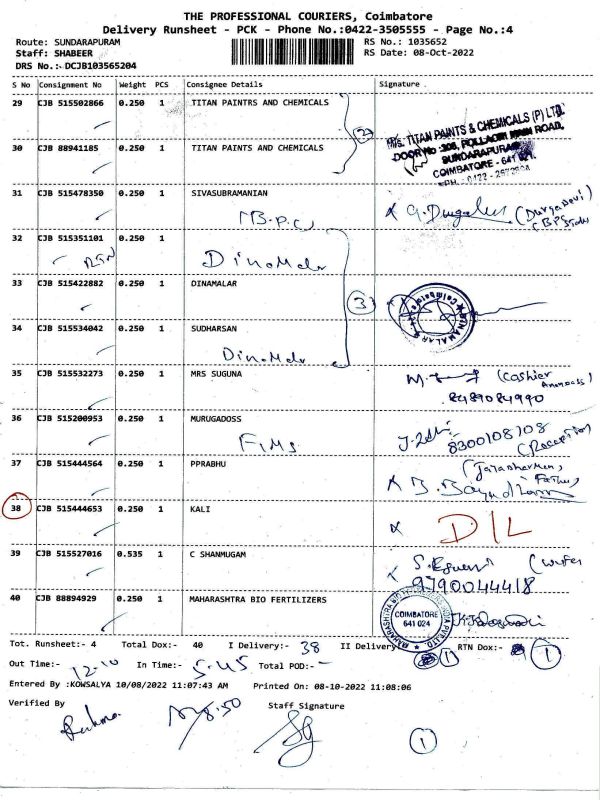 THE PROFESSIONAL COURIERS, Coimbatore
Delivery Runsheet - PCK - Phone No.:0422-3505555 - Page No.:4
Route: SUNDARAPURAM RS No.: 1035652
Staff: SHABEER RS Date: 08-Oct-2022
DRS No.:- DCJB103565204
S No Consignment No Weight PCS Consignee Details Signature
29 CJB 515502866 0.250 1 TITAN PAINTRS AND CHEMICALS
2
M/s. TITAN PAINTS & CHEMICALS (P) LTD.
DOOR No : 308, POLLACHI MAIN ROAD,
SUNDARAPURAM
COIMBATORE - 641 021.
30 CJB 88941185 0.250 1 TITAN PAINTS AND CHEMICALS
31 CJB 515478350 0.250 1 SIVASUBRAMANIAN
(Durgadevi)
32 CJB 515351101 0.250 1
RTN Dinamalar
33 CJB 515422882 0.250 1 DINAMALAR
3
DINAMALAR Coimbatore
34 CJB 515534042 0.250 1 SUDHARSAN
Dinamalar
35 CJB 515532273 0.250 1 MRS SUGUNA
(Cashier
8489084990
36 CJB 515200953 0.250 1 MURUGADOSS
FIMS
8300108108
(Reception)
37 CJB 515444564 0.250 1 PPRABHU
Father)
38 CJB 515444653 0.250 1 KALI
D/L
39 CJB 515527016 0.535 1 C SHANMUGAM
(wife)
9790044418
40 CJB 88894929 0.250 1 MAHARASHTRA BIO FERTILIZERS
COIMBATORE
641 024
Tot. Runsheet:- 4 Total Dox:- 40 I Delivery:- 38 II Delivery:- 1 RTN Dox:- 1
Out Time:- 12-10 In Time:- 5.45 Total POD:-
Entered By :KOWSALYA 10/08/2022 11:07:43 AM Printed On: 08-10-2022 11:08:06
Verified By Staff Signature
8.50
1